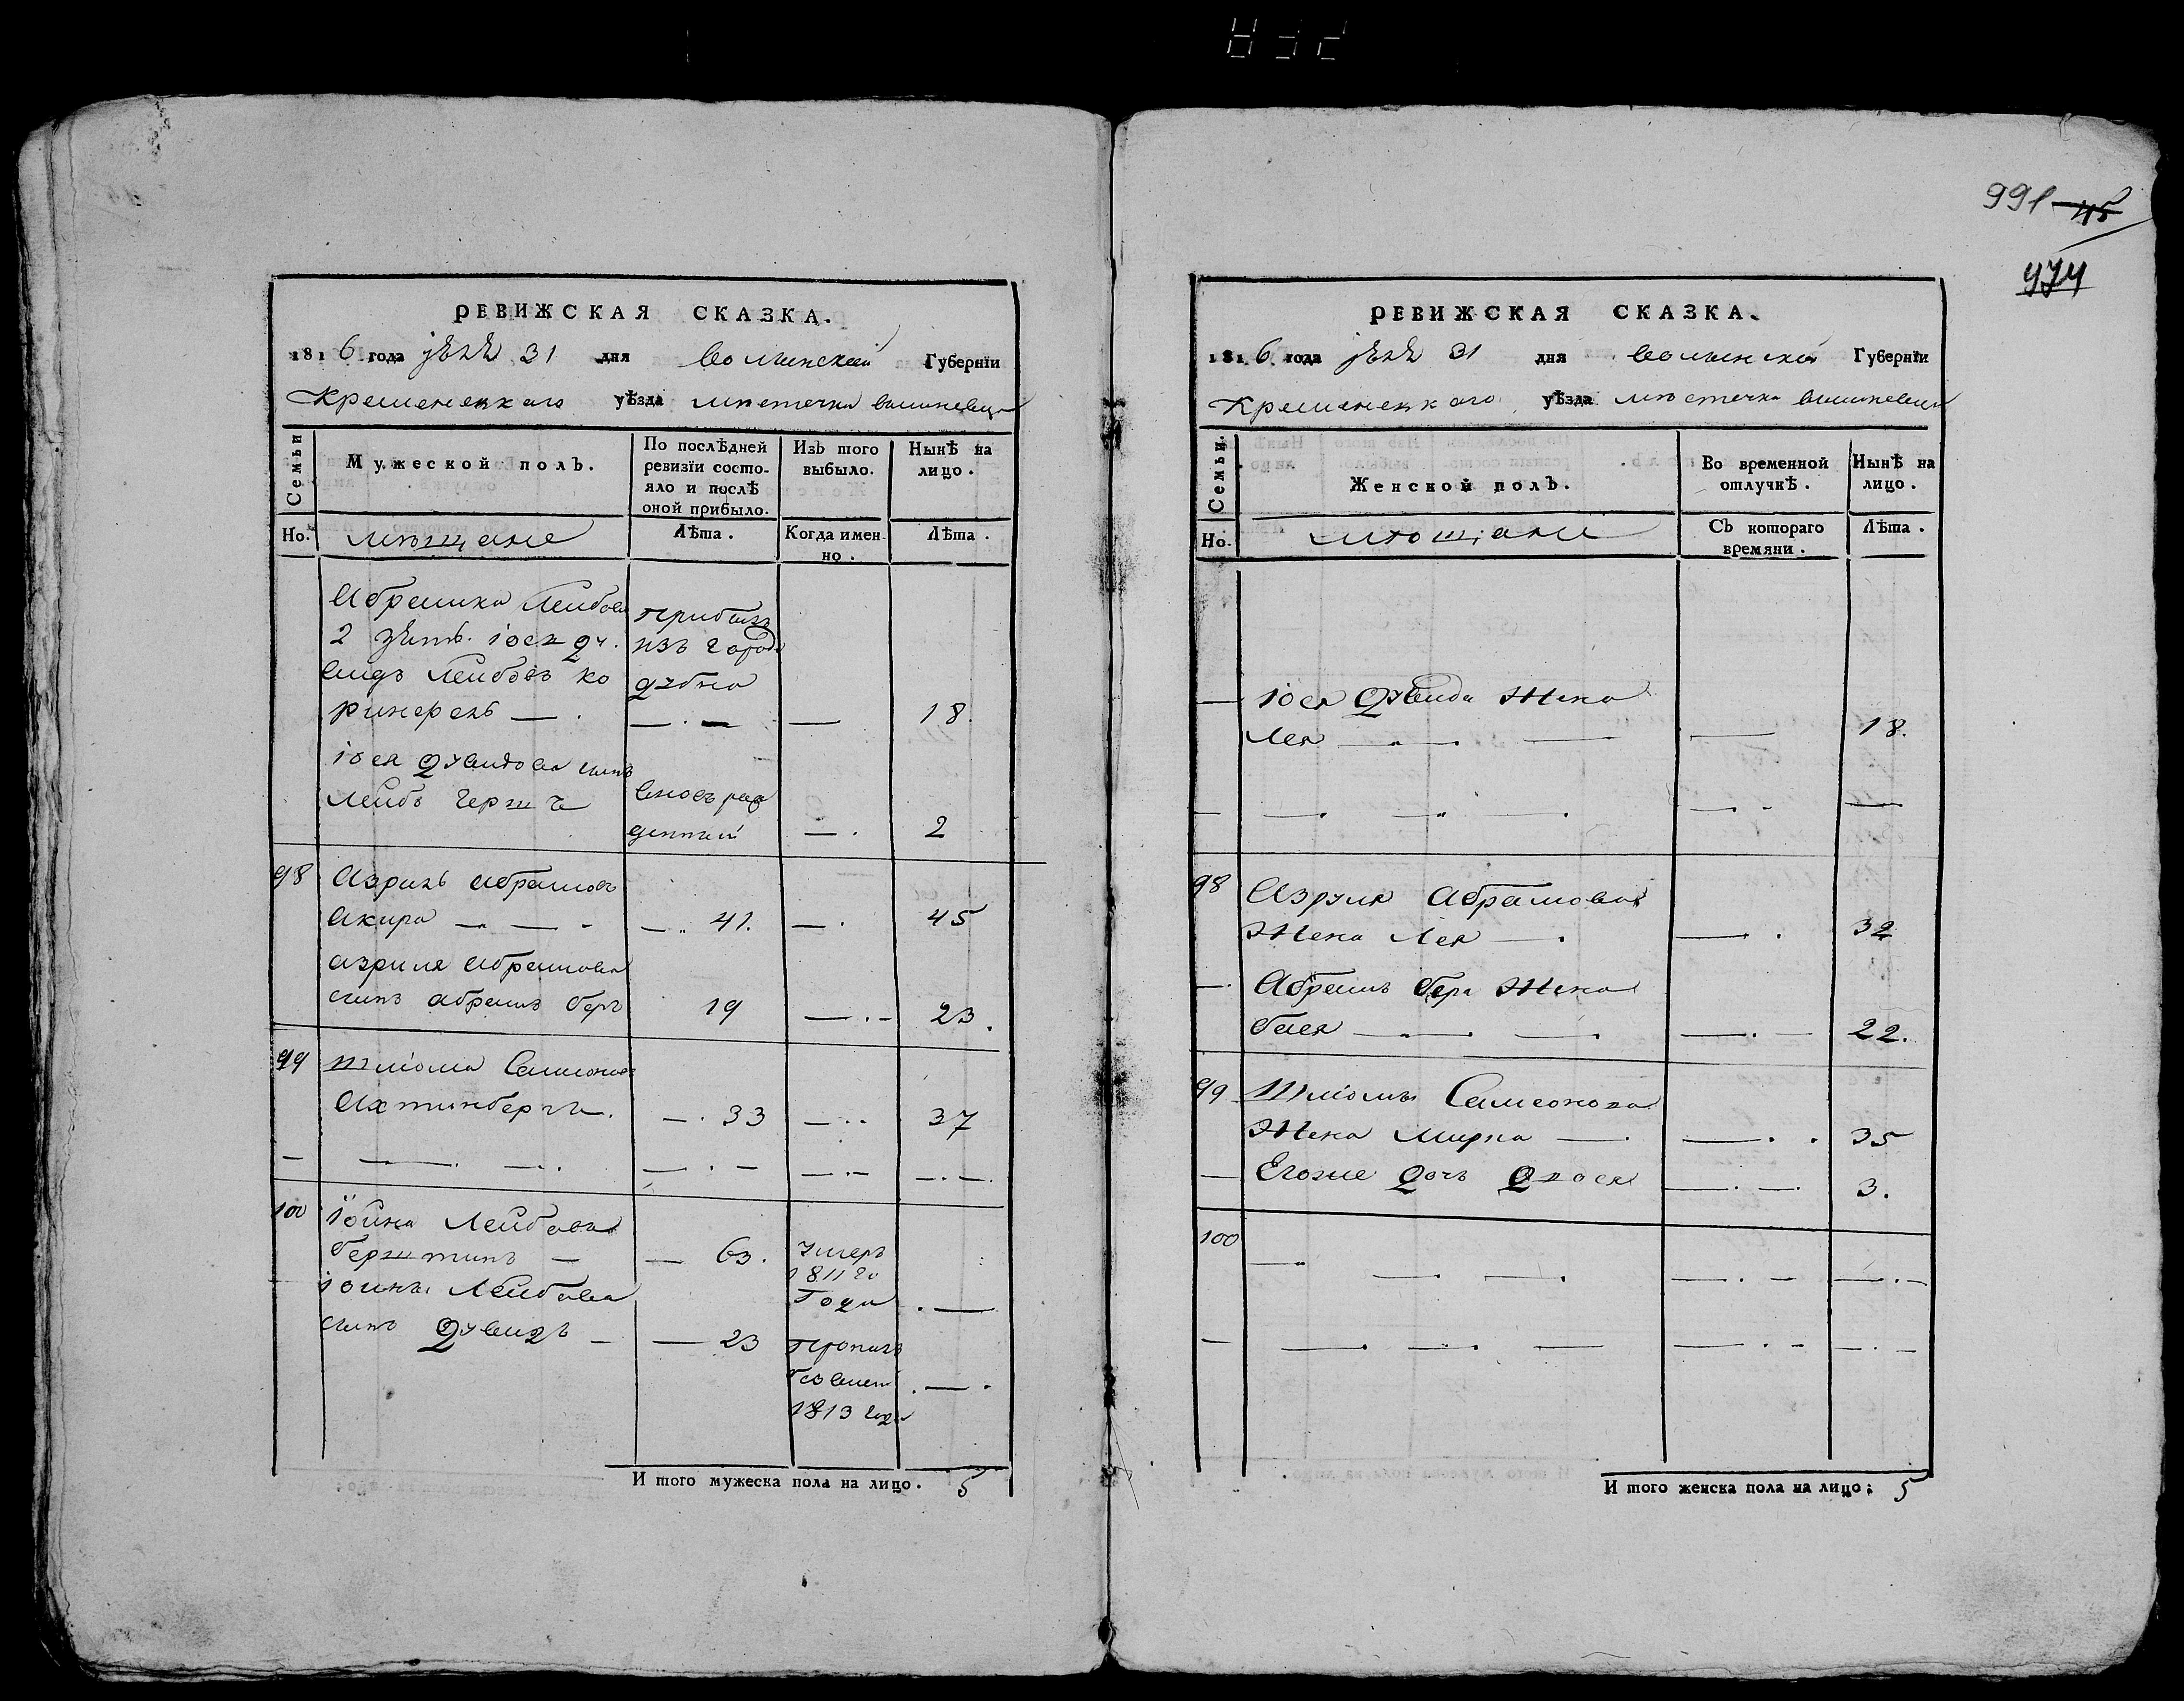 991 45
974
РЕВИЖСКАЯ СКАЗКА.
1816 года 31 дня Волынской Губернїи
Кременецкаго уѣзда местечка Вишневца
Семьи
Мужеской полъ.
По послѣдней ревизїи состояло и послѣ оной прибыло.
Изъ того выбыло.
Нынѣ на лицо.
Но.
мещане
Лѣта.
Когда именно.
Лѣта.
Абрамка Лейбов прибылъ
2 зять. iося ду. изъ города
видъ Лейбовъ ко дубна
— . — — 18.
iося дувидова сынъ
Лейбъ Герш вновь рож
денный — . 2
98 Азриль абрамовъ
Акира — — - — 41. — . 45
азриля абрамова
сынъ абрамъ беръ 19 — . - 23.
99 шлiома Самсонов
Ахтинбергъ. — . 33 — . . 37
— — . — . . — . - — . - — . — .
100 Iойна Лейбовъ
берштинъ — — 63. умеръ
1811 го
года . —
iойны Лейбова
сынъ дувидъ — — 23 пропалъ
без вест . — .
1813 года
И того мужеска пола на лицо. 5
РЕВИЖСКАЯ СКАЗКА.
1816 года 31 дня Волынской Губернїи
Кременецкаго уѣзда местечка Вишневца
Семьи.
Женской полъ.
Во временной отлучкѣ.
Нынѣ на лицо.
Но.
мещане
Съ котораго времяни.
Лѣта.
— iося Дувида Жена
Лея — . — — 18.
— — . — . — . - —
98 Азриля Абрамова
Жена Лея — . — . 32
— Абрамъ бера Жена
бася — . — . — . — 22.
99 Шлiомы Самсонова
Жена Мирка — . — . . 35
— Егоже Дочь Двося — . — . 3.
100 — — . — . — . - — . -
— — . — . — — . - — . -
И того женска пола на лицо: 5